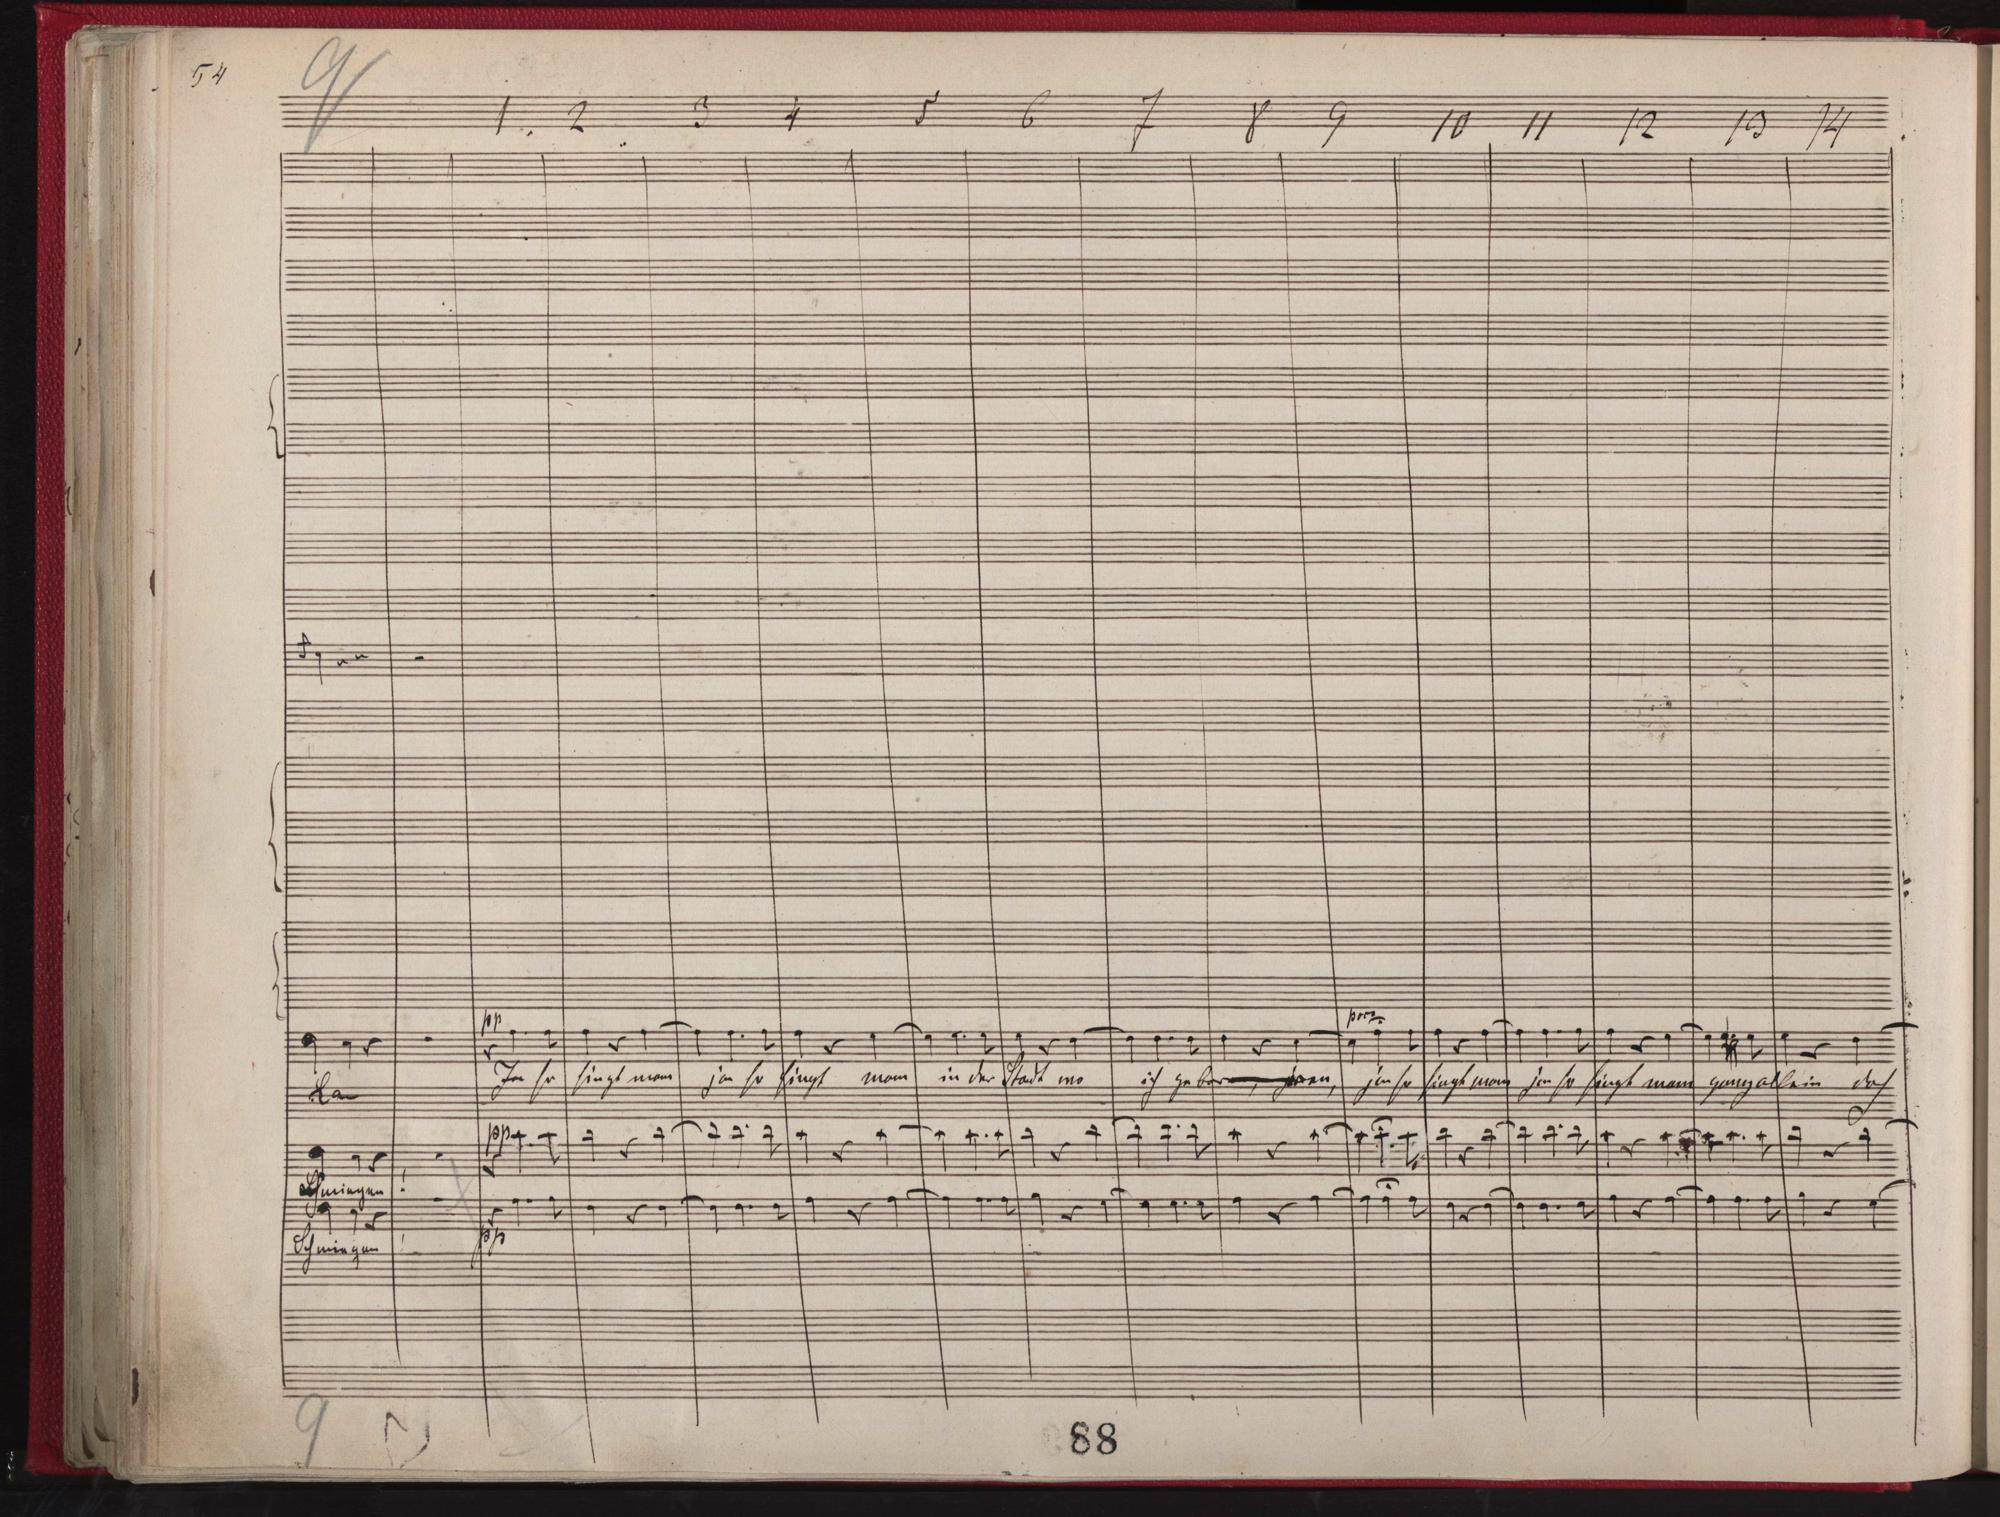 54
9
1 2 3 4 5 6 7 8 9 10 11 12 13 14
pp
Ja so singt man ja so singt man in der Stadt wo ich geboren, ja so singt man ja so singt man ganz allein das
La
pp
Schwingen!
Schwingen!
pp
9
88